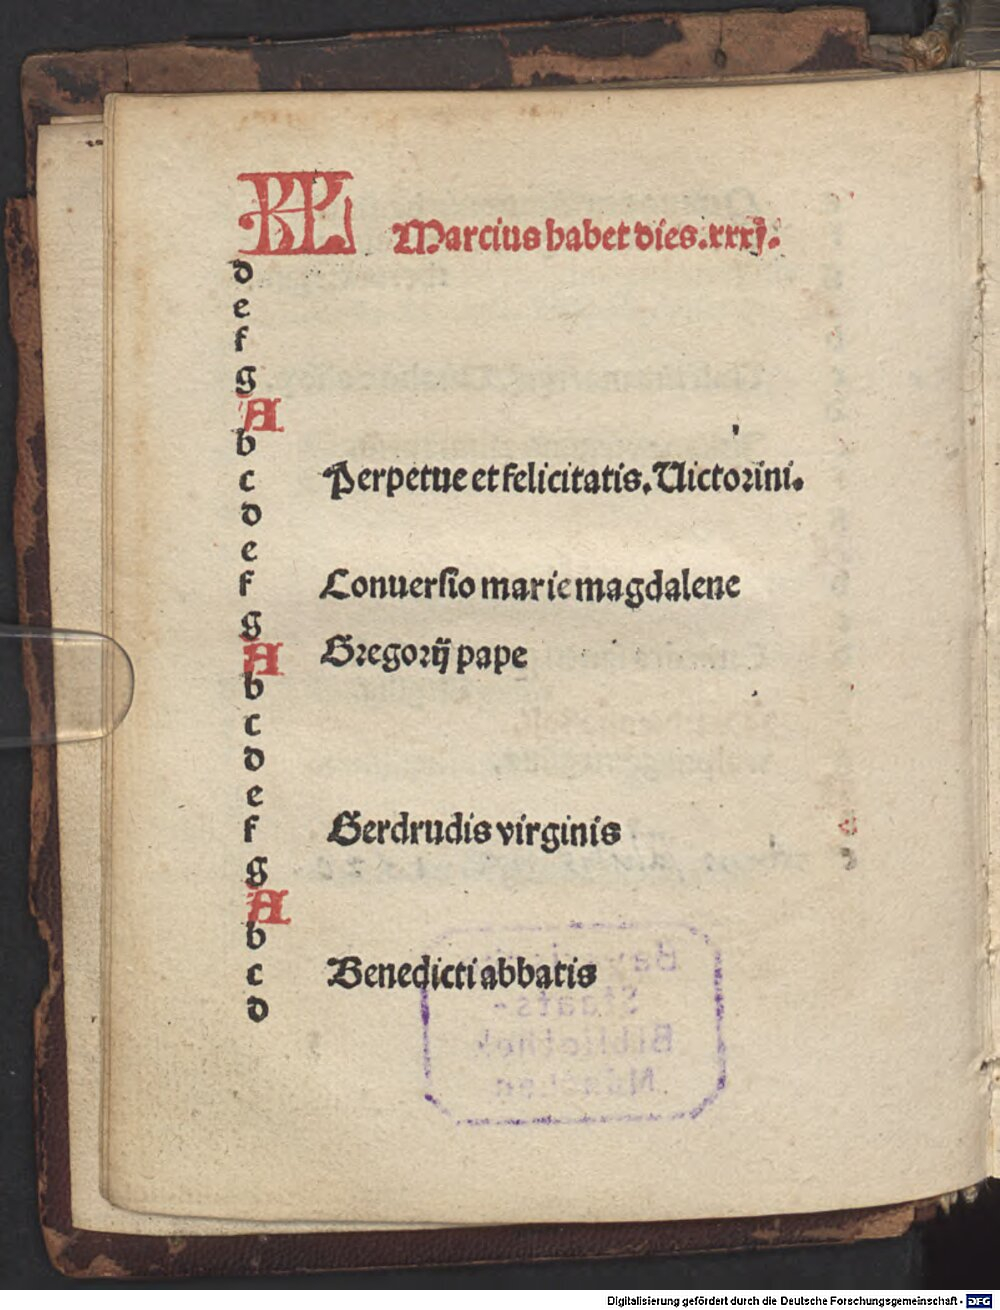 KL Marcius habet dies.xxxj.
d
e
f
g
A
b
c Perpetue et felicitatis. Uictorini.
d
e
f Conuersio marie magdalene
g
A Gregorij pape
b
c
d
e
f Gerdrudis virginis
g
A
b
c Benedicti abbatis
d
Digitalisierung gefördert durch die Deutsche Forschungsgemeinschaft - DFG